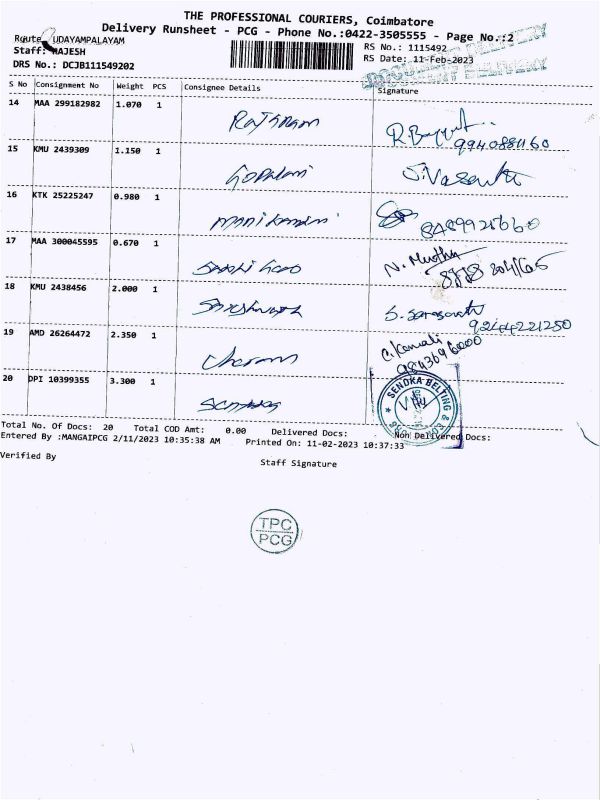 THE PROFESSIONAL COURIERS, Coimbatore
Delivery Runsheet - PCG - Phone No.:0422-3505555 - Page No.:2
Route UDAYAMPALAYAM
Staff: RAJESH
RS No.: 1115492
DRS No.: DCJB111549202
RS Date: 11-Feb-2023
DOCUMENT DELIVERY
DOCUMENT DELIVERY
S No Consignment No Weight PCS Consignee Details Signature
14 MAA 299182982 1.070 1
9940881160
15 KMU 2439309 1.150 1 Gopalani
16 KTK 25225247 0.980 1 manikandan
8489921660
17 MAA 300045595 0.670 1 N. Muthu
18 KMU 2438456 2.000 1 S. Saraswathi
9244221250
19 AMD 26264472 2.350 1 C. Kamali
9843696000
20 DPI 10399355 3.300 1
SENOKA BELTING &
Total No. Of Docs: 20 Total COD Amt: 0.00 Delivered Docs: Non Delivered Docs:
Entered By :MANGAIPCG 2/11/2023 10:35:38 AM Printed On: 11-02-2023 10:37:33
Verified By Staff Signature
TPC
PCG